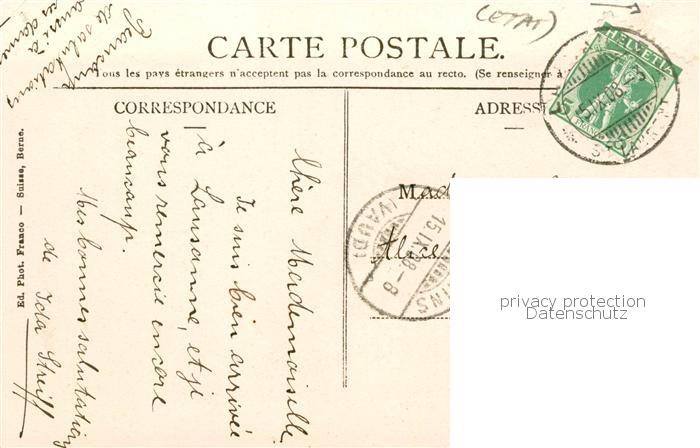 (ETAT)
CARTE POSTALE.
Tous les pays étrangers n'acceptent pas la correspondance au recto. (Se renseigner à
CORRESPONDANCE
ADRESS
HELVETIA
5
FRANCO
Chère Mademoiselle
Je suis bien arrivée
à Lausanne, et je
vous remercie encore
beaucoup.
Mes bonnes salutations
de Ida Streiff
Beaucoup
de salutations
aussi à
Mad
Alice
(VAUD)
15.IX.08-8
INS
Ed. Phot. Franco — Suisse, Berne.
privacy protection
Datenschutz